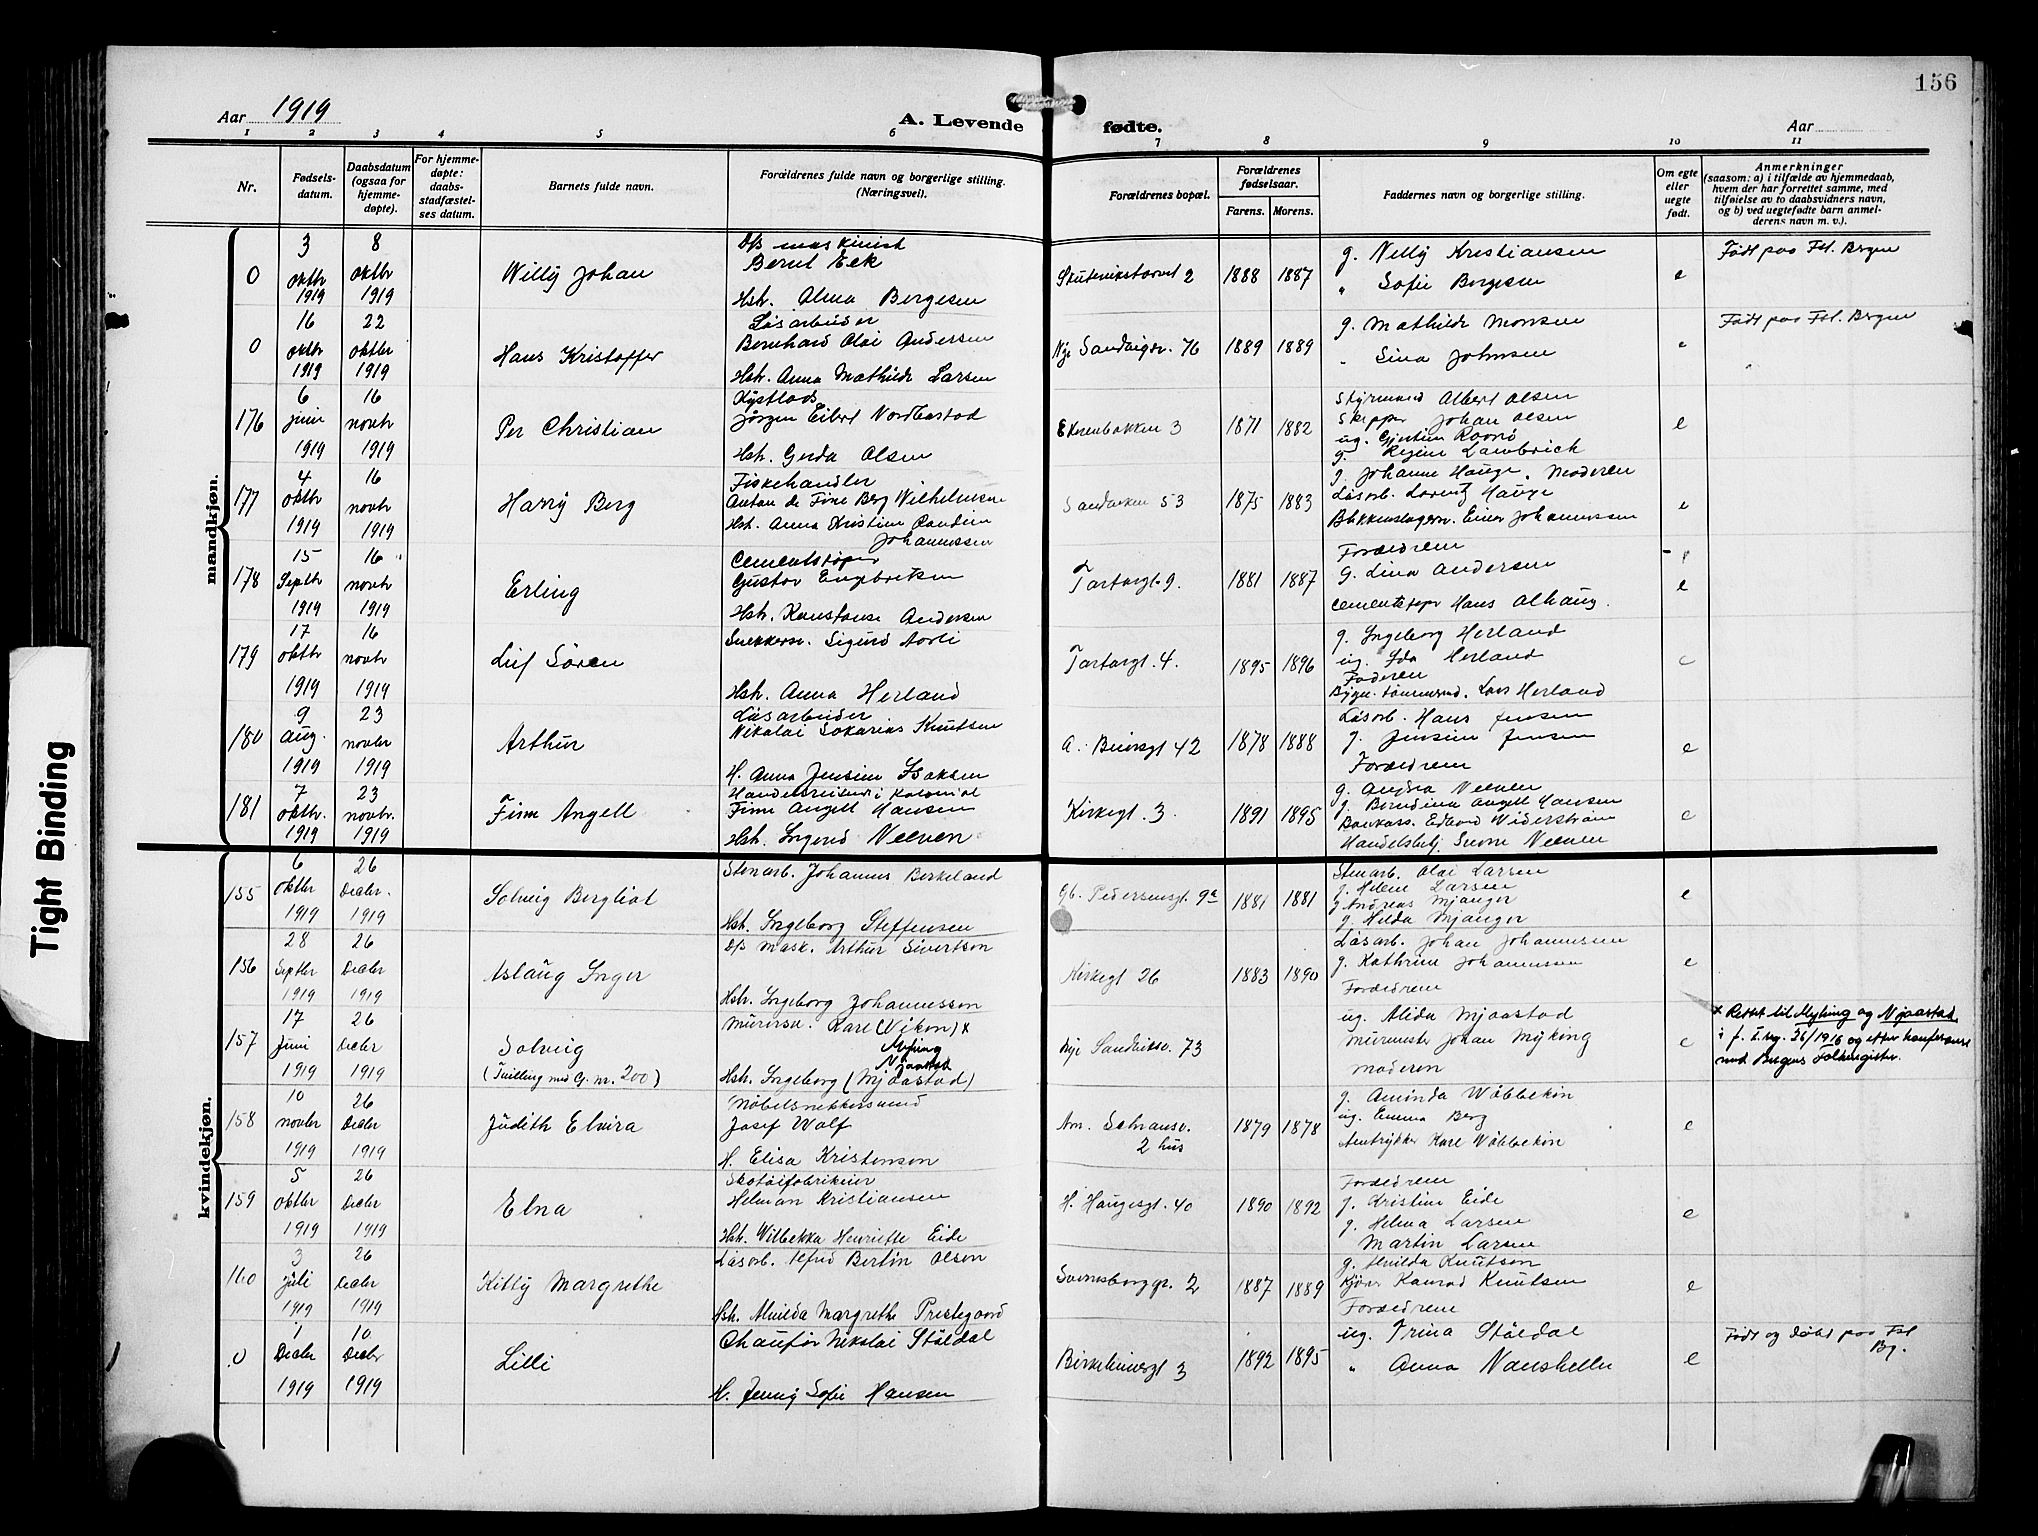 156
Aar 1919
A. Levende fødte.
Aar
1 2 3 4 5 6 7 8 9 10 11
Nr.
Fødsels-
datum.
Daabsdatum
(ogsaa for
hjemme-
døpte).
For hjemme-
døpte:
daabs-
stadfæstel-
ses datum.
Barnets fulde navn.
Forældrenes fulde navn og borgerlige stilling.
(Næringsvei).
Forældrenes bopæl.
Forældrenes
fødselsaar.
Farens. Morens.
Faddernes navn og borgerlige stilling.
Om egte
eller
uegte
født.
Anmerkninger
(saasom: a) i tilfælde av hjemmedaab,
hvem der har forrettet samme, med
tilføielse av to daabsvidners navn,
og b) ved uegtefødte barn anmel-
derens navn m. v.).
mandkjøn.
0
3 oktbr 1919
8 oktbr 1919
Willy Johan
D/s maskinist
Bernt Eek
Hstr. Alma Børgesen
2
1888 1887
g. Nelly Kristiansen
" Sofie Børgesen
e
Født paa Fsl. Bergen
0
16 oktbr 1919
22 oktbr 1919
Hans Kristoffer
Løsarbeider
Bernhard Olai Andersen
Hstr. Anna Mathilde Larsen
Nye Sandvigsv. 76
1889 1889
g. Mathilde Monsen
" Sina Johnsen
e
Født paa Fsl. Bergen
176
6 juni 1919
16 novbr 1919
Per Christian
Kystlods
Jørgen Eilert Nordbøstad
Hstr. Gerda Olsen
Ekrenbakken 3
1871 1882
Styrmand Albert Olsen
Skipper Johan Olsen
ug. Gjertine
g. Regine Lambrich
e
177
4 oktbr 1919
16 novbr 1919
Harry Berg
Fiskehandler
Anton de Fine Berg Wilhelmsen
Hstr. Anna Kristine
Johannessen
53
1875 1883
g. Johanne Hauge. Moderen
Løsarb. Lorentz Hauge
Blikkenslagersv. Einar Johannessen
e
178
15 Septbr 1919
16 novbr 1919
Erling
Cementstøper
Gustav Engebretsen
Hstr. Konstanse Andersen
Tartargt. 9.
1881 1887
Forældrene
G. Lina Andersen
Cementstøper Hans Alhaug.
e
179
17 oktbr 1919
16 novbr 1919
Leif Sören
Snekkersv. Sigurd Aarli
Hstr. Anna Herland
Tartargt. 4.
1895 1896
g. Ingeborg Herland
ug. Ida Herland
Faderen
Bygn. tømmermd. Lars Herland
e
180
9 aug. 1919
23 novbr 1919
Arthur
Løsarbeider
Nikolai Sakarias Knutsen
H. Anna Jensine Isaksen
A. Beiersgt 42
1878 1888
Løsarb. Hans Jensen
g. Jensine Jensen
Forældrene
e
181
7 oktbr. 1919
23 novbr. 1919
Finn Angell
Handelsreisende i kolonial
Finn Angell Hansen
Hstr. Ingerid Neeven
Kirkegt. 3.
1891 1895
g. Andrea Neeven
g. Berndina Angell Hansen
Bankass. Edvard Widerstrøm
Handelsbetj. Sverre Neeven
e
kvindekjøn.
155
6 oktbr 1919
26 Decbr. 1919
Solveig Bergliot
Stenarb. Johannes Birkeland
Hstr. Ingeborg Steffensen
Gb. Pedersensgt. 9a
1881 1881
Stenarb. Olai Larsen
g. Helene Larsen
g. Andreas Mjanger
g. Hilda Mjanger
e
156
28 Septbr 1919
26 Decbr 1919
Aslaug Inger
D/s Mask. Arthur Sivertsen
Hstr. Ingeborg Johannessen
Kirkegt 26
1883 1890
Løsarb. Johan Johannessen
g. Kathrine Johannessen
Forældrene
e
157
17 Juni 1919
26 Decbr 1919
Solveig
(Tvilling med G. nr. 200)
Murersv. Karl (Nikon) x
Myking
Njaastad
Hstr. Ingeborg (Mjaastad)
Nye Sandviksv. 73
ug. Alida Mjaastad
Murmester Johan Myking
Moderen
e
x Rettet til Myking og Njaastad
i f. 36/1916 og efter konferanse
med Bergens Folkeregister.
158
10 novbr 1919
26 Decbr 1919
Judith Elvira
Møbelsnekkersvend
Josef Wolf
H. Elisa Kristensen
2 hus
1879 1878
g. Aminda Wöbbekin
ug. Emma Berg
Karl Wöbbekin
e
159
5 oktbr 1919
26 Decbr 1919
Elna
Skotøifabrikeier
Helman Kristiansen
Hstr. Wilbekka Henriette Eide
H. Haugesgt. 40
1890 1892
Forældrene
g. Kristine Eide
g. Helma Larsen
Martin Larsen
e
160
3 juli 1919
26 Decbr 1919
Kitty Margrethe
Løsarb. Alfred Bertin Olsen
Hstr. Alvilda Margrethe Prestegaard
2
1887 1889
g. Alvilda Knutson
Kjører Konrad Knutsen
Forældrene
e
0
1 Decbr 1919
10 Decbr 1919
Lilli
Chaufför Nikolai Ståldal
H. Jenny Sofie Hansen
Birkelunersgt 3
1892 1895
ug. Trina Ståldal
" Anna
e
Født og døbt paa Fsl
Bg.
Tight Binding